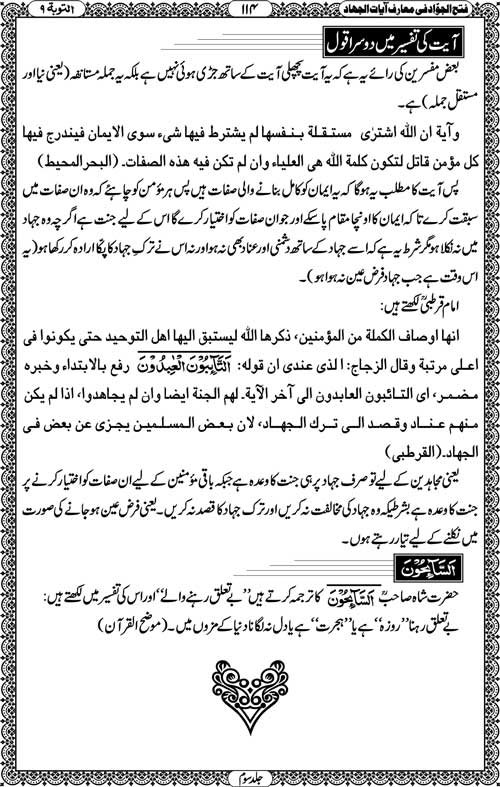 فتح الجوّاد فی معارف آیات الجہاد
۱۱۴
التوبة ۹
آیت کی تفسیر میں دوسرا قول
بعض مفسرین کی رائے یہ ہے کہ یہ آیت پچھلی آیت کے ساتھ جڑی ہوئی نہیں ہے بلکہ یہ جملہ مستانفہ (یعنی نیا اور
مستقل جملہ) ہے۔
وآیة ان اللہ اشتری مستقلة بنفسها لم یشترط فیها شیء سوی الایمان فیندرج فیها
کل مؤمن قاتل لتکون کلمة اللہ هی العلیاء وان لم تکن فیه هذه الصفات۔ (البحرالمحیط)
پس آیت کا مطلب یہ ہوگا کہ یہ ایمان کو کامل بنانے والی صفات ہیں پس ہر مؤمن کو چاہئے کہ وہ ان صفات میں
سبقت کرے تاکہ ایمان کا اونچا مقام پاسکے اور جو ان صفات کو اختیار کرے گا اس کے لیے جنت ہے اگرچہ وہ جہاد
میں نہ نکلا ہو مگر شرط یہ ہے کہ اسے جہاد کے ساتھ دشمنی اور عناد بھی نہ ہو اور نہ اس نے ترکِ جہاد کا پکا ارادہ کر رکھا ہو (یہ
اس وقت ہے جب جہاد فرض عین نہ ہوا ہو)۔
امام قرطبیؒ لکھتے ہیں:
انها اوصاف الکملة من المؤمنین، ذکرها اللہ لیستبق الیها اهل التوحید حتی یکونوا فی
اعلی مرتبة وقال الزجاج: الذی عندی ان قوله: اَلتَّآئِبُوْنَ الْعٰبِدُوْنَ رفع بالابتداء وخبره
مضمر، ای التائبون العابدون الی آخر الآیة۔ لهم الجنة ایضا وان لم یجاهدوا، اذا لم یکن
منهم عناد وقصد الی ترک الجهاد، لان بعض المسلمین یجزی عن بعض فی
الجهاد۔(القرطبی)
یعنی مجاہدین کے لیے تو صرف جہاد پر ہی جنت کا وعدہ ہے جبکہ باقی مؤمنین کے لیے ان صفات کو اختیار کرنے پر
جنت کا وعدہ ہے بشرطیکہ وہ جہاد کی مخالفت نہ کریں اور ترک جہاد کا قصد نہ کریں۔ یعنی فرض عین ہو جانے کی صورت
میں نکلنے کے لیے تیار رہتے ہوں۔
اَلسَّآئِحُوْنَ
حضرت شاہ صاحبؒ اَلسَّآئِحُوْنَ کا ترجمہ کرتے ہیں ’’بے تعلق رہنے والے‘‘ اور اس کی تفسیر میں لکھتے ہیں:
بے تعلق رہنا ’’روزہ‘‘ ہے یا ’’ہجرت‘‘ ہے یا دل نہ لگانا دنیا کے مزوں میں۔ (موضح القرآن)
جلد سوم